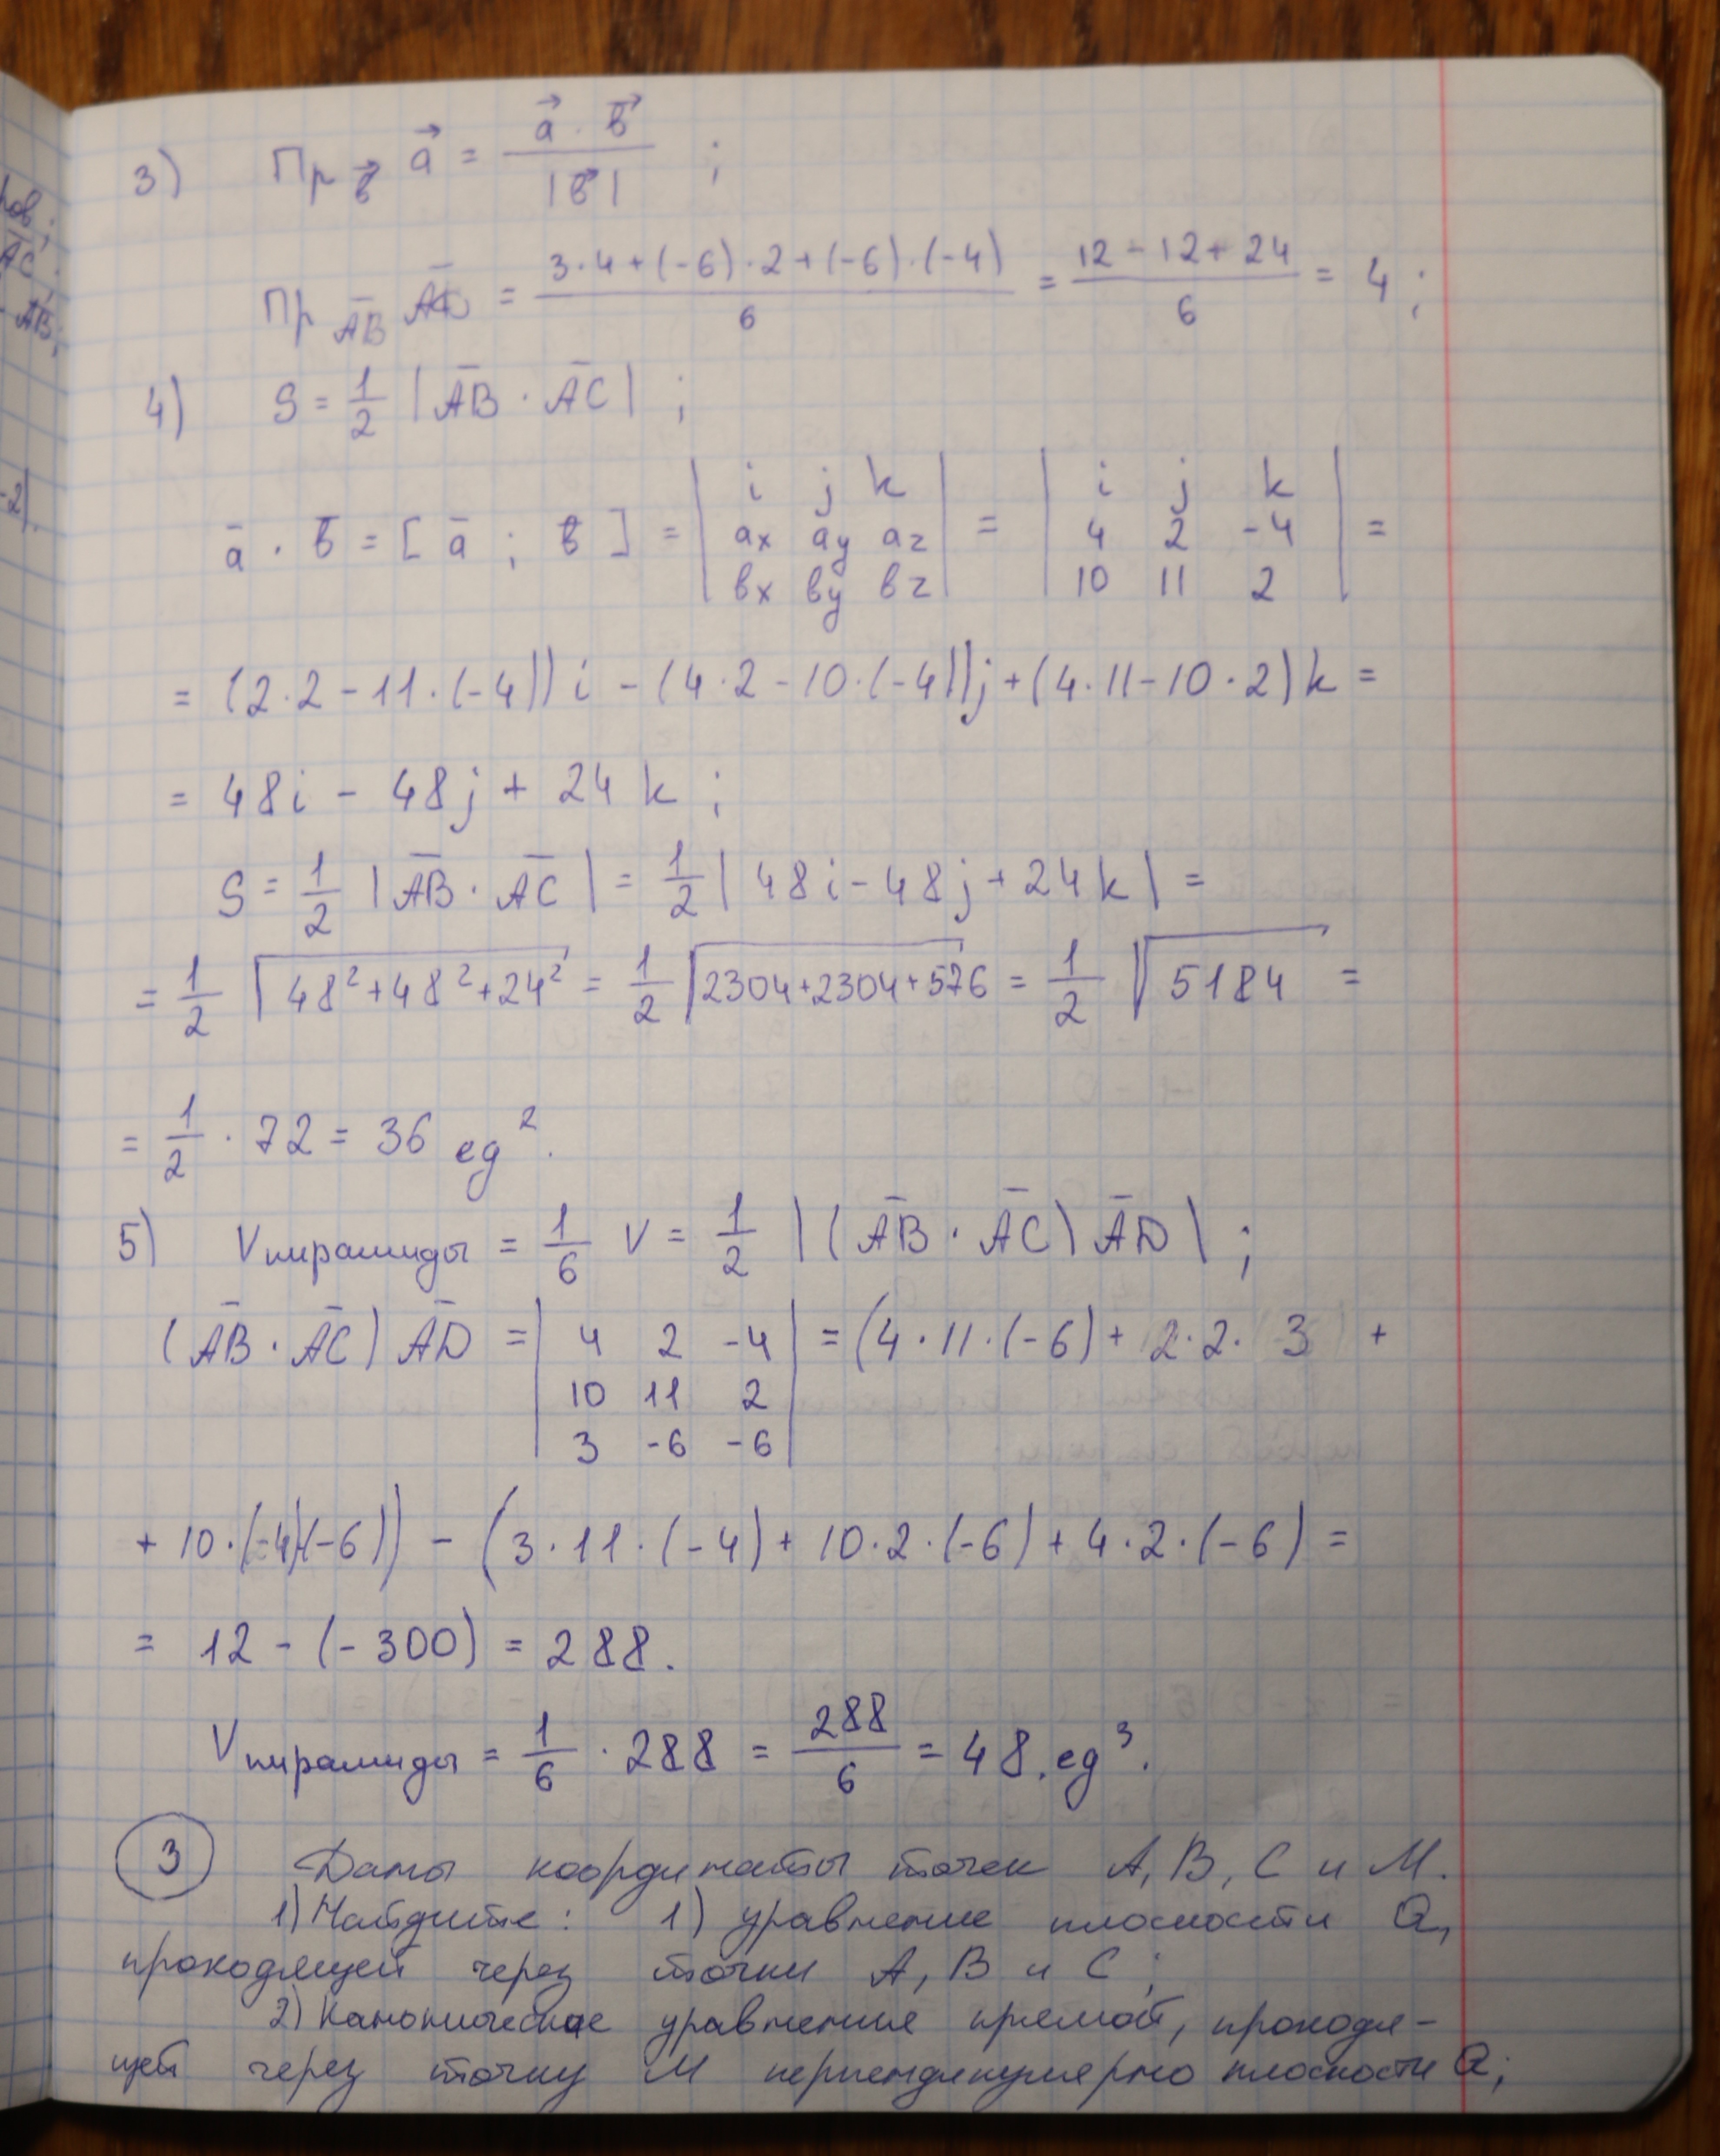 ров;
AC.
- AB;
-2|.
3) Пр_b⃗ a⃗ = (a⃗ · b⃗) / |b⃗| ;
Пр_A̅B̅ A̅D̅ = (3·4+(-6)·2+(-6)·(-4)) / 6 = (12-12+24) / 6 = 4 ;
4) S = 1/2 |A̅B̅ · A̅C̅| ;
a̅ · b̅ = [ a̅ ; b̅ ] = | i j k ; ax ay az ; bx by bz | = | i j k ; 4 2 -4 ; 10 11 2 | =
= (2·2-11·(-4)) i - (4·2-10·(-4))j+(4·11-10·2)k =
= 48i - 48j + 24k ;
S = 1/2 |A̅B̅ · A̅C̅| = 1/2 | 48i-48j+24k | =
= 1/2 √(48²+48²+24²) = 1/2 √(2304+2304+576) = 1/2 √5184 =
= 1/2 · 72 = 36 ед².
5) Vпирамиды = 1/6 V = 1/2 |(A̅B̅ · A̅C̅) A̅D̅| ;
(A̅B̅ · A̅C̅) A̅D̅ = | 4 2 -4 ; 10 11 2 ; 3 -6 -6 | = (4·11·(-6)+ 2·2· 3 +
+ 10·(-4)(-6)) - (3·11·(-4)+10·2·(-6)+4·2·(-6) =
= 12 - (-300) = 288.
Vпирамиды = 1/6 · 288 = 288/6 = 48. ед³.
3 Даны координаты точек A, B, C и M.
1) Найдите: 1) уравнение плоскости Q,
проходящей через точки A, B и C;
2) Каноническое уравнение прямой, проходя-
щей через точку M перпендикулярно плоскости Q;